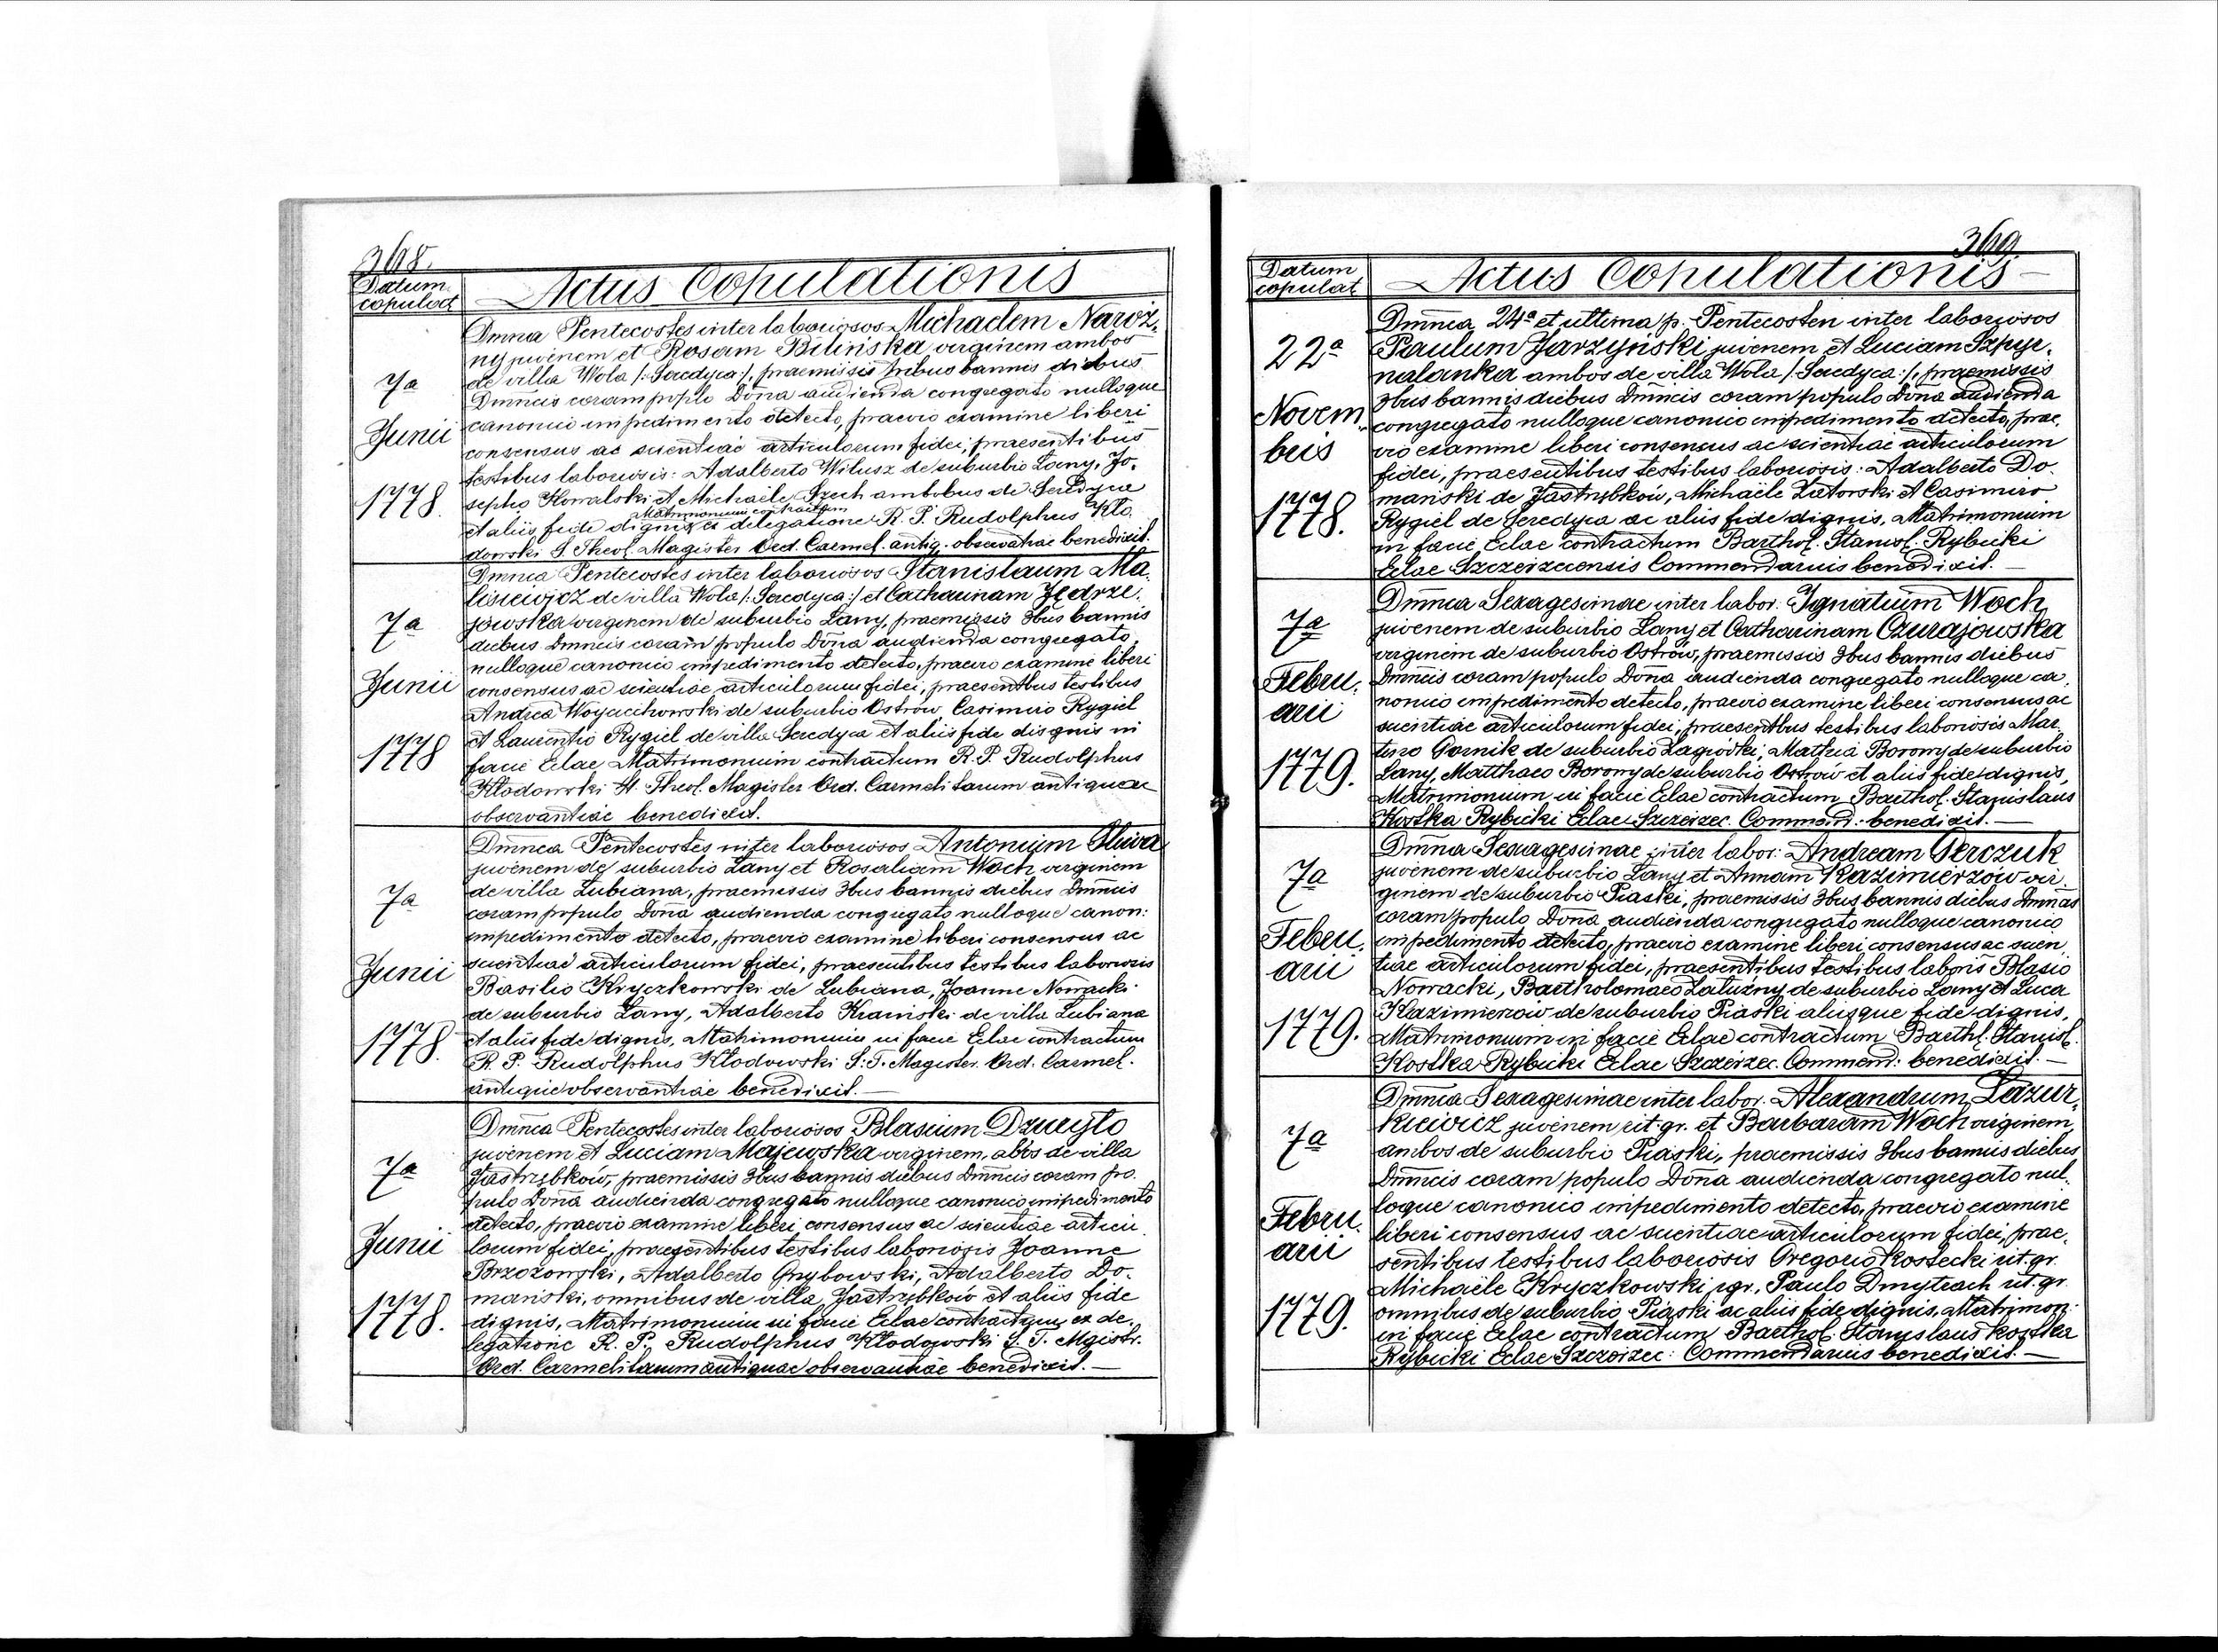 368.
Datum copulat
Actus Copulationis
7a Junii 1778.
Dmnca Pentecostes inter laboriosos Michaelem Naroż,
ny juvenem et Rosam Bilińska virginem ambos
de villa Wola /:Seredyca:/, praemissis tribus bannis diebus
Dmncis coram poplo Dōna audienda congregato nulloque
canonico impedimento detecto, praevio examine liberi
consensus ac scientiae articulorum fidei, praesentibus
testibus laboriosis: Adalberto Wilusz de suburbio Łany, Jo,
sepho Kowalski et Michaële Szech ambobus de Seredyca
Matrimonium contractum
et aliis fide dignis ex delegatione R. P. Rudolphus Kło,
dowski S. Theol. Magister Ord. Carmel. antiq. observatiae benedixit.
7a Junii 1778
Dmnca Pentecostes inter laboriosos Stanislaum Ma,
lisiewicz de villa Wola /:Seredyca:/ et Catharinam Jędrze,
jowska virginem de suburbio Łany, praemissis 3bus bannis
diebus Dmncis coram populo Dōna audienda congregato,
nulloque canonico impedimento detecto, praevio examine liberi
consensus ac scientiae articulorum fidei, praesentbus testibus
Andrea Woyciechowski de suburbio Ostrów, Casimiro Rygiel
et Laurentio Rygiel de villa Seredyca et aliis fide disgnis in
facie Eclae Matrimonium contractum R. P. Rudolphus
Kłodowski S. Theol. Magister Ord. Carmelitarum antiquae
observantiae benedixit.
7a Junii 1778.
Dmnca Pentecostes inter laboriosos Antonium Śliwa
juvenem de suburbio Łany et Rosaliam Woch virginem
de villa Lubiana, praemissis 3bus bannis diebus Dmncis
coram populo Dōna audienda congregato nulloque canon:
impedimento detecto, praevio examine liberi consensus ac
scientiae articulorum fidei, praesentibus testibus laboriosis
Basilio Kryczkowski de Lubiana, Joanne Nowacki
de suburbio Łany, Adalberto Kraiński de villa Lubiana
et aliis fide dignis, Matrimonium in facie Eclae contractum
R. P. Rudolphus Kłodowski S: T. Magister Ord. Carmel.
antique observantiae benedixit.—
7a Junii 1778.
Dmnca Pentecostes inter laboriosos Blasium Dzuryło
juvenem et Luciam Majewska virginem, abōs de villa
Jastrzębków, praemissis 3bus bannis diebus Dmncis coram po,
pulo Dōna audienda congregato nulloque canonico impedimento
detecto, praevio examine liberi consensus ac scientiae articu
lorum fidei, praesentibus testibus laboriosis Joanne
Brzozowski, Adalberto Grzybowski, Adalberto Do,
mański, omnibus de villa Jastrzębków et aliis fide
dignis, Matrimonium in facie Eclae contractum ex de,
legatione R. P. Rudolphus Kłodowski S. T. Mgistr.
Ord. Carmelitarum antiquae observantiae benedixit.—
369.
Datum copulat
Actus Copulationis
22a Novem, bris 1778.
Dmnca 24a et ultima p. Pentecosten inter laboriosos
Paulum Jarzyński juvenem et Luciam Szpyr,
nalanka ambos de villa Wola /:Seredyca:/, praemissis
3bus bannis diebus Dmncis coram populo Dōna audienda
congregato nulloque canonico impedimento detecto, prae,
vio examine liberi consensus ac scientiae articulorum
fidei, praesentibus testibus laboriosis: Adalberto Do,
mański de Jastrzębków, Michaële Zatorski et Casimiro
Rygiel de Seredyca ac aliis fide dignis, Matrimonium
in facie Eclae contractum Barthol. Stanisl. Rybicki
Eclae Szczerzecensis Commendarius benedixit.—
7a Febru, arii 1779.
Dmnca Sexagesimae inter labor: Ignatium Woch
juvenem de suburbio Łany et Catharinam Czurajowska
virginem de suburbio Ostrów, praemissis 3bus bannis diebus
Dmncis coram populo Dōna audienda congregato nulloque ca,
nonico impedimento detecto, praevio examine liberi consensus ac
scientiae articulorum fidei, praesentbus testibus laboriosis Mar,
tino Gornik de suburbio Zagródki, Mathia Borowy de suburbio
Łany, Matthaeo Borowy de suburbio Ostrów et aliis fide dignis,
Matrimonium in facie Eclae contractum Barthol. Stanislaus
Kostka Rybicki Eclae Szczerzec. Commend: benedixit.—
7a Febru, arii 1779.
Dmna Sexagesimae inter labor: Andream Gerczuk
juvenem de suburbio Łany et Annam Kazimierzow vir,
ginem de suburbio Piaski, praemissis 3bus bannis diebus Dmncis
coram populo Dōna audienda congregato nulloque canonico
impedimento detecto, praevio examine liberi consensus ac scien
tiae articulorum fidei, praesentibus testibus laboris Blasio
Nowacki, Bartholomaeo Załużny de suburbio Łany et Luca
Kazimierzow de suburbio Piaski aliisque fide dignis,
Matrimonium in facie Eclae contractum Barthl. Stanisl.
Kostka Rybicki Eclae Szczerzec. Commend: benedixit.—
7a Febru, arii 1779.
Dmnca Sexagesimae inter labor. Alexandrum Łazur,
kiewicz juvenem rit. gr. et Barbaram Woch virginem,
ambos de suburbio Piaski, praemissis 3bus bannis diebus
Dmncis coram populo Dōna audienda congregato nul,
loque canonico impedimento detecto, praevio examine
liberi consensus ac scientiae articulorum fidei, prae,
sentibus testibus laboriosis Gregorio Kostecki rit. gr.
Michaële Kryczkowski r. gr., Paulo Dmytrach rit. gr.
omnibus de suburbio Piaski ac aliis fide dignis, Matrimon:
in facie Eclae contractum Barthol. Stanislaus Kostka
Rybicki Eclae Szczerzec: Commendarius benedixit.—